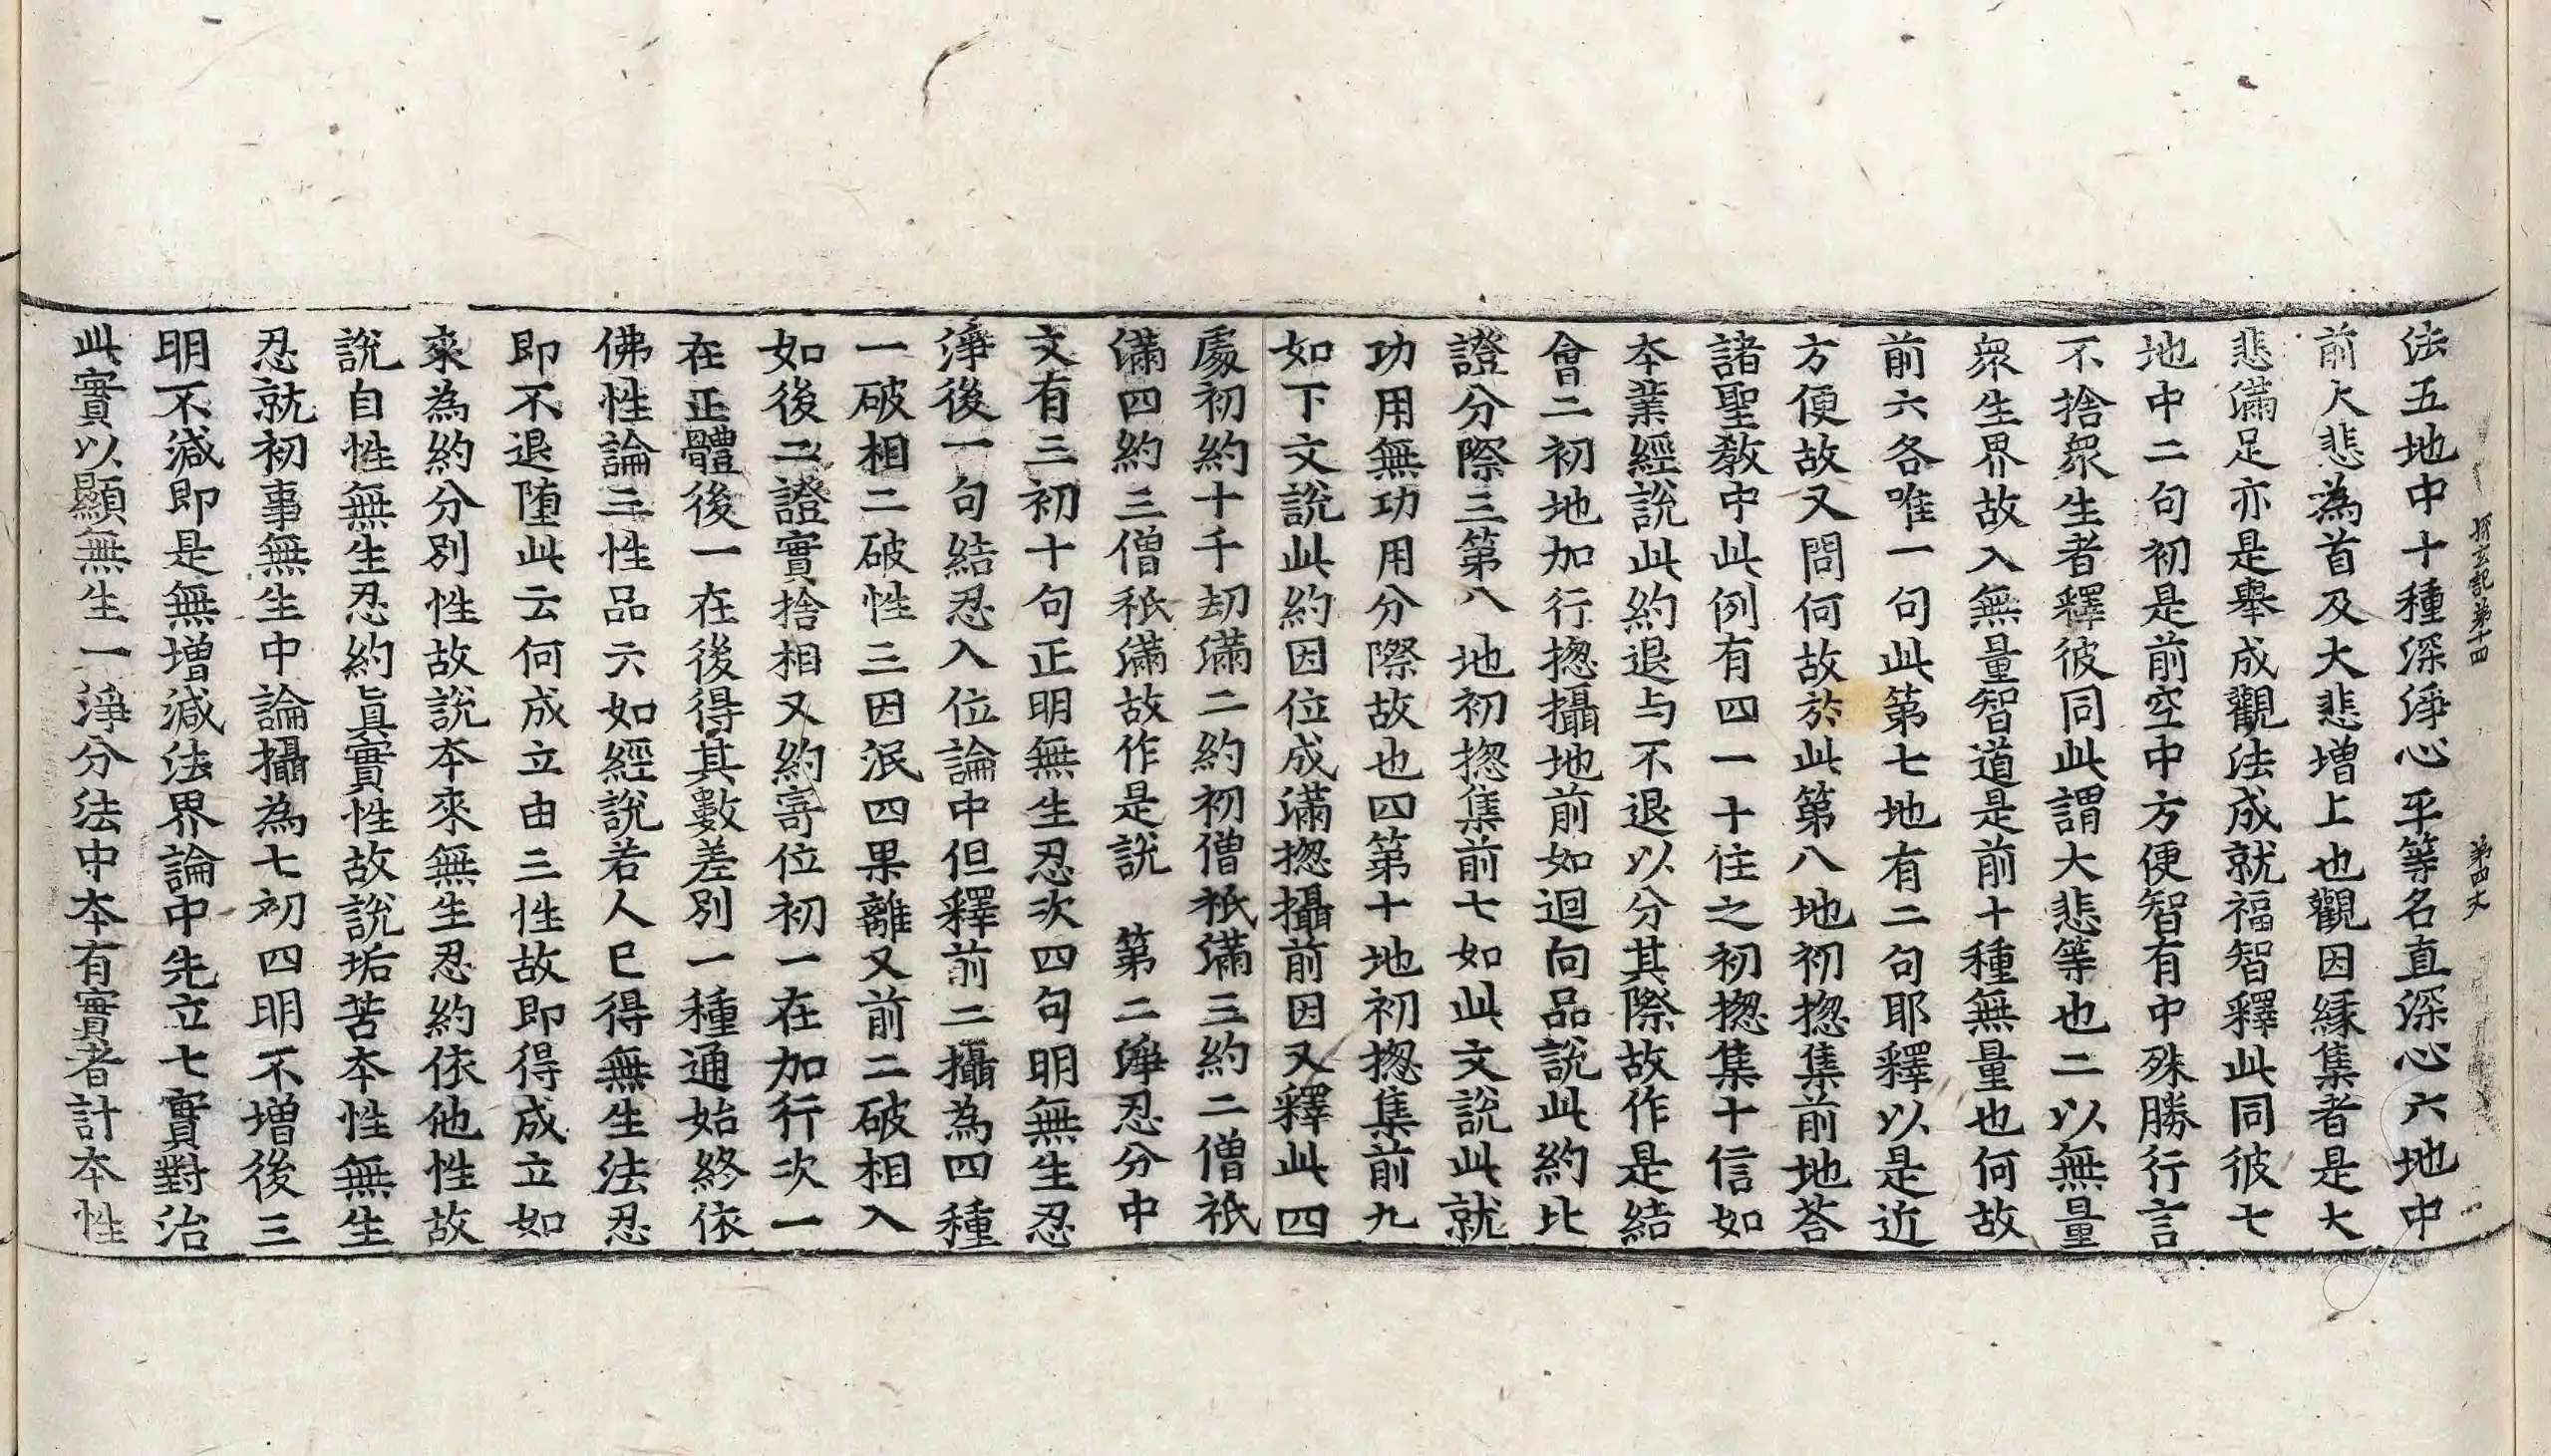 探玄記第十四 第四丈
法五地中十種深淨心平等名直深心六地中
前大悲為首及大悲增上也觀因縁集者是大
悲滿足亦是舉成觀法成就福智釋此同彼七
地中二句初是前空中方便智有中殊勝行言
不捨衆生者釋彼同此謂大悲等也二以無量
衆生界故入無量智道是前十種無量也何故
前六各唯一句此第七地有二句耶釋以是近
方便故又問何故於此第八地初揔集前地荅
諸聖教中此例有四一十住之初揔集十信如
本業經說此約退与不退以分其際故作是結
會二初地加行揔攝地前如迴向品說此約比
證分際三第八地初揔集前七如此文說此就
功用無功用分際故也四第十地初揔集前九
如下文說此約因位成滿揔攝前因又釋此四
處初約十千劫滿二約初僧祇滿三約二僧祇
滿四約三僧祇滿故作是說 第二淨忍分中
文有三初十句正明無生忍次四句明無生忍
淨後一句結忍入位論中但釋前二攝為四種
一破相二破性三因泯四果離又前二破相入
如後二證實捨相又約寄位初一在加行次一
在正體後一在後得其數差別一種通始終依
佛性論三性品六如經說若人已得無生法忍
即不退墮此云何成立由三性故即得成立如
來為約分別性故說本來無生忍約依他性故
說自性無生忍約真實性故說垢苦本性無生
忍就初事無生中論攝為七初四明不增後三
明不減即是無增減法界論中先立七實對治
此實以顯無生一淨分法中本有實者計本性